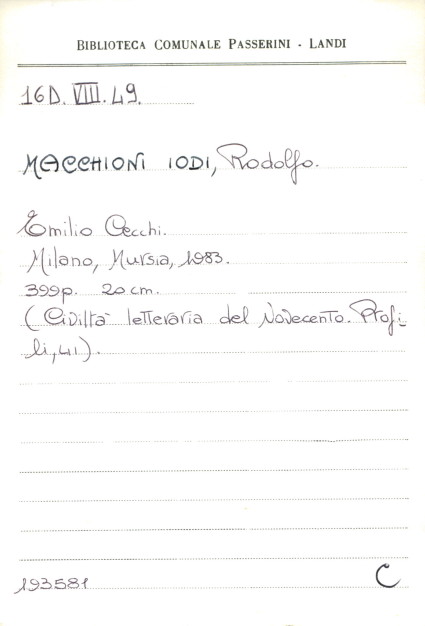 BIBLIOTECA COMUNALE PASSERINI - LANDI
16D. VIII. 49.
MACCHIONI IODI, Rodolfo.
Emilio Cecchi.
Milano, Mursia, 1983.
399p. 20 cm.
(Civiltà letteraria del Novecento. Profi-
li, 41).
193581
C